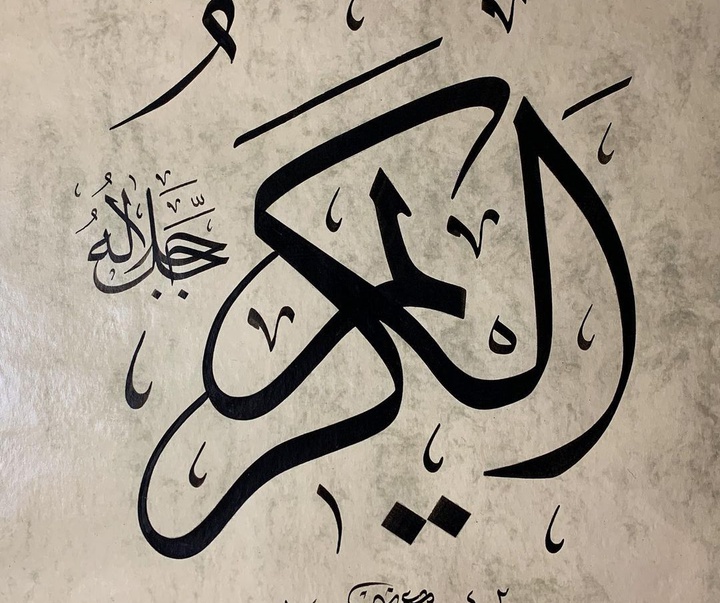 الكريمُ
جل جلاله